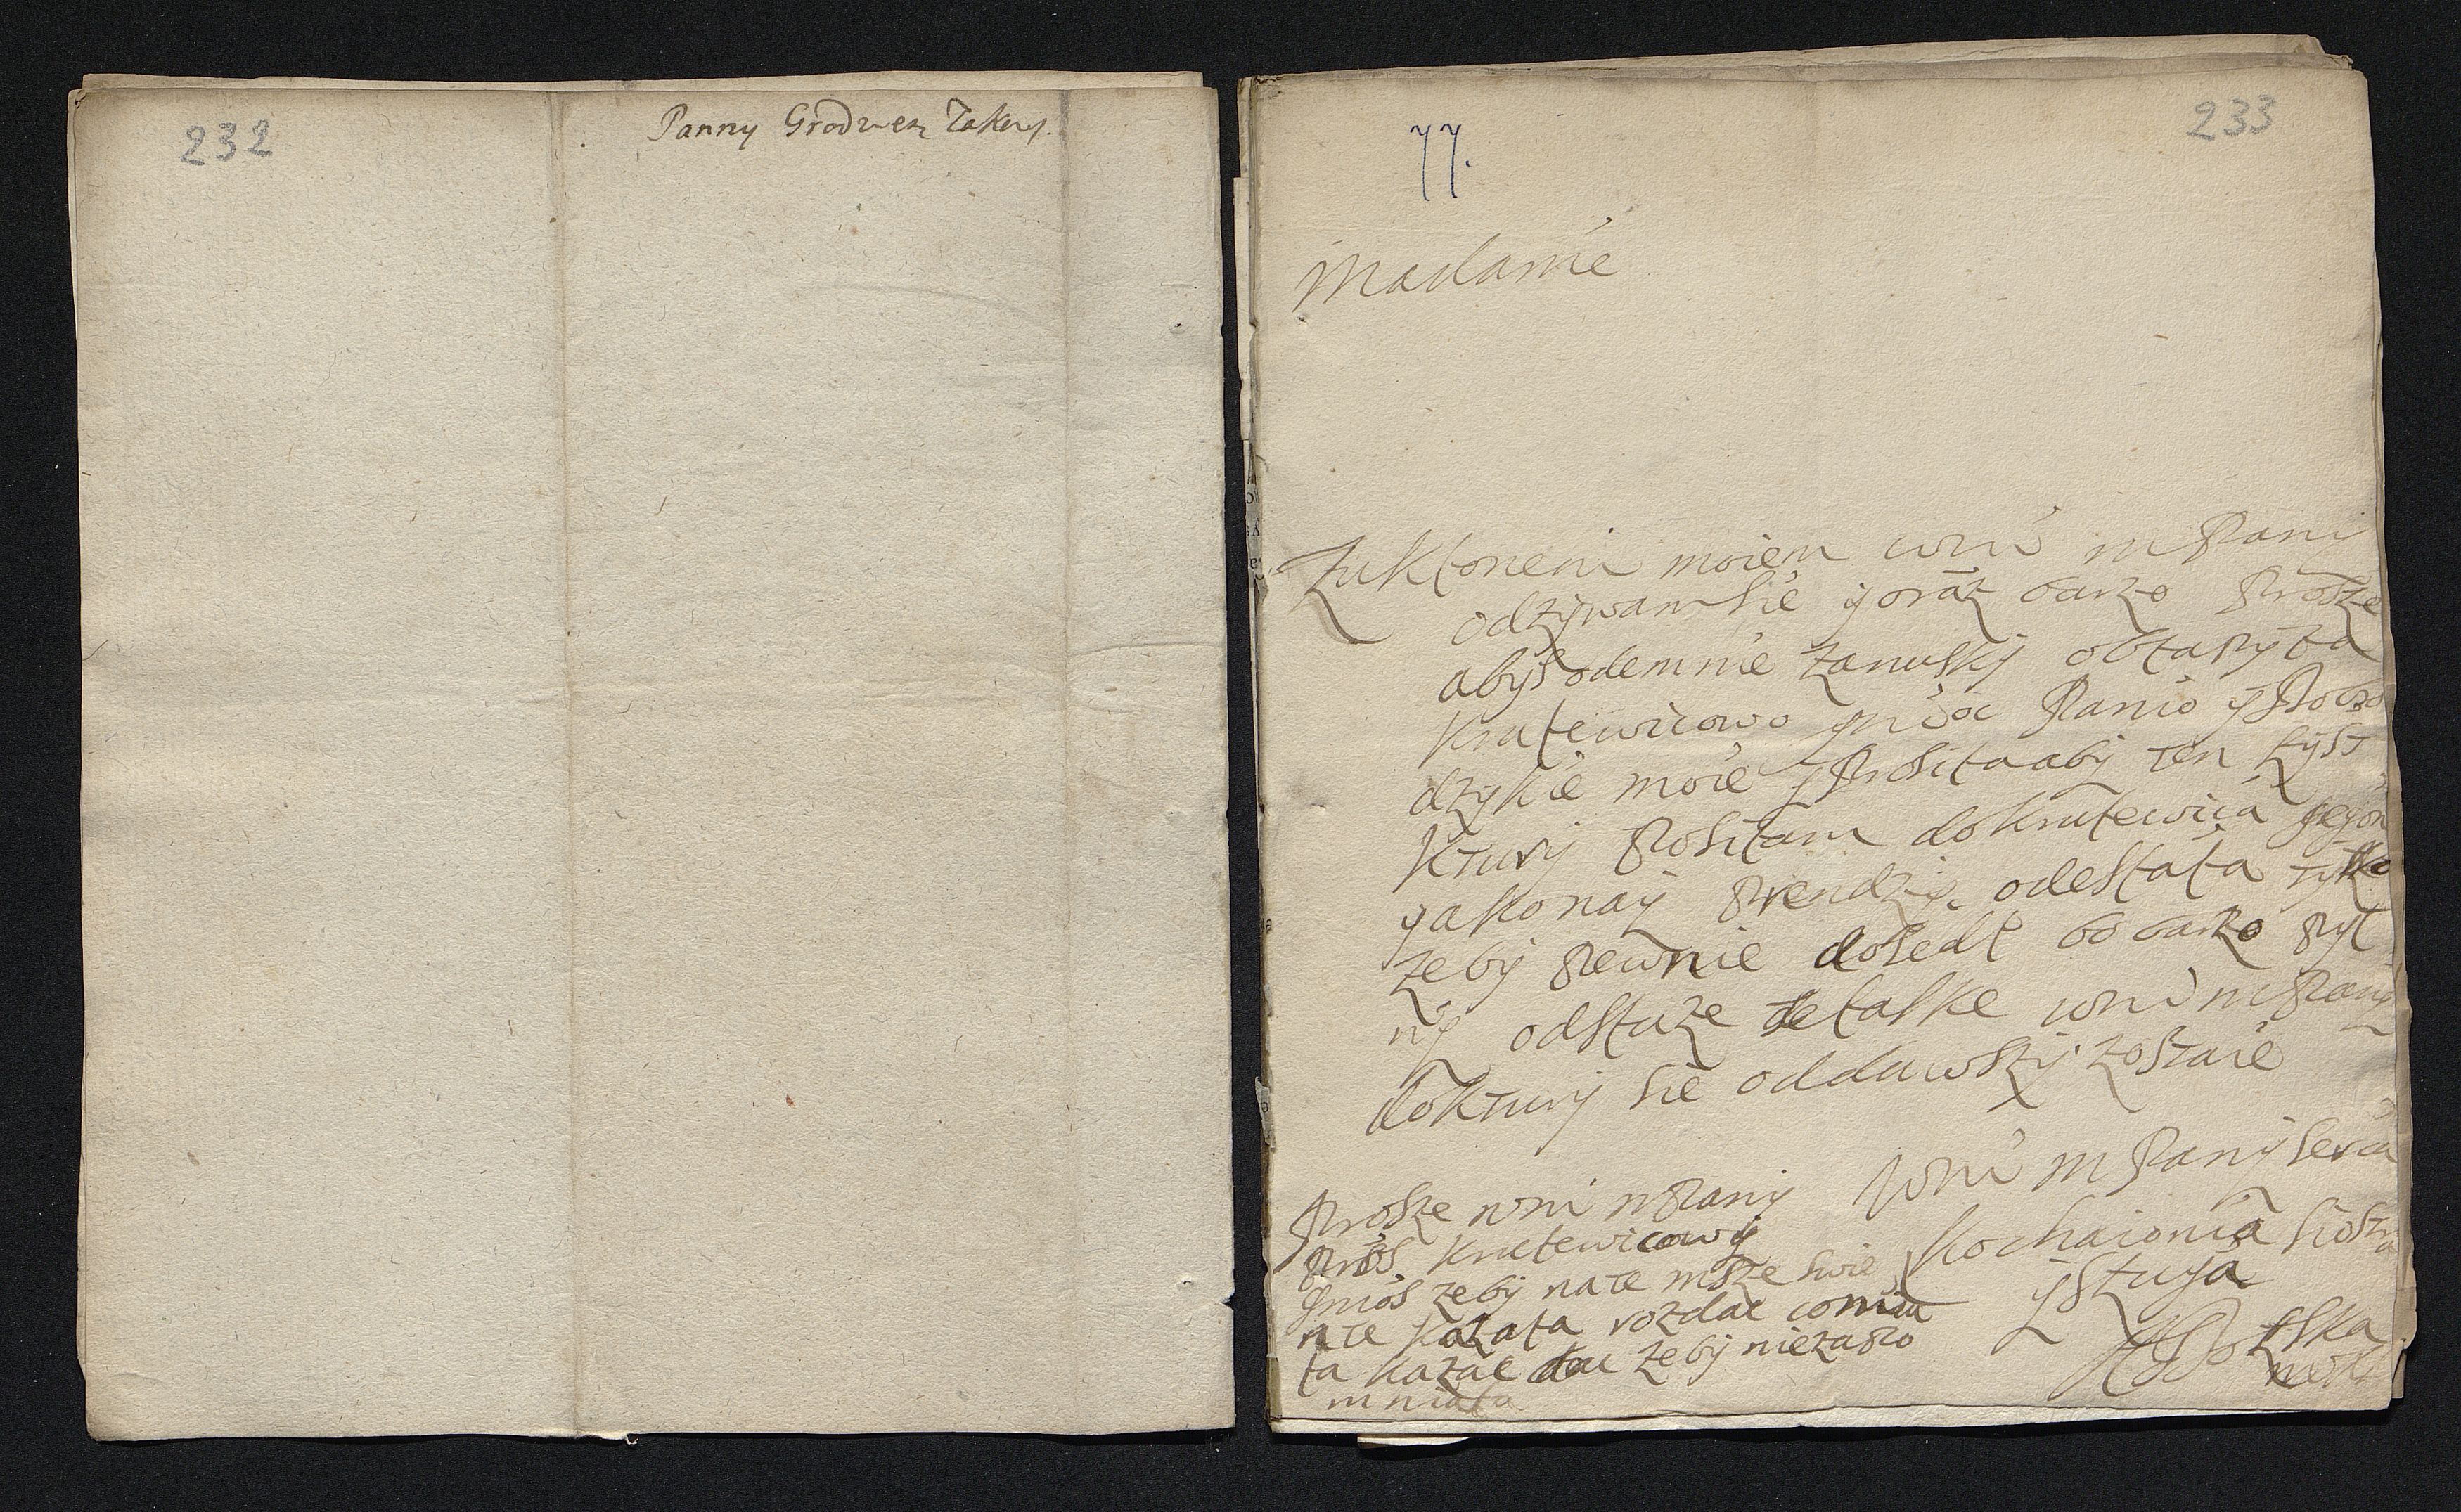 232
Panny Grodzen
233
77.
Madame
Zukłonem moiem wm m Pani
odzywam sie y oraz barzo prosze
abyś odemnie zanuski obłapyła
krulewicowo Panio y
dzykie moie y prosiła aby ten lyst
ktury posiłam do krulewica
yako nay prendzy odesłała tylko
zeby pewnie dosedł bo barzo pyl
ny odsłuze te łaske wm m Pany
do ktury sie oddawszy zostaie
wm m Pany serca
kochaionca siostra
y sługa
Prosze wm m Pany
proś krulewicowy
zeby na te msze swie
nte kazała rozdac co mia
ła kazac dac zeby nie zapo
mniała